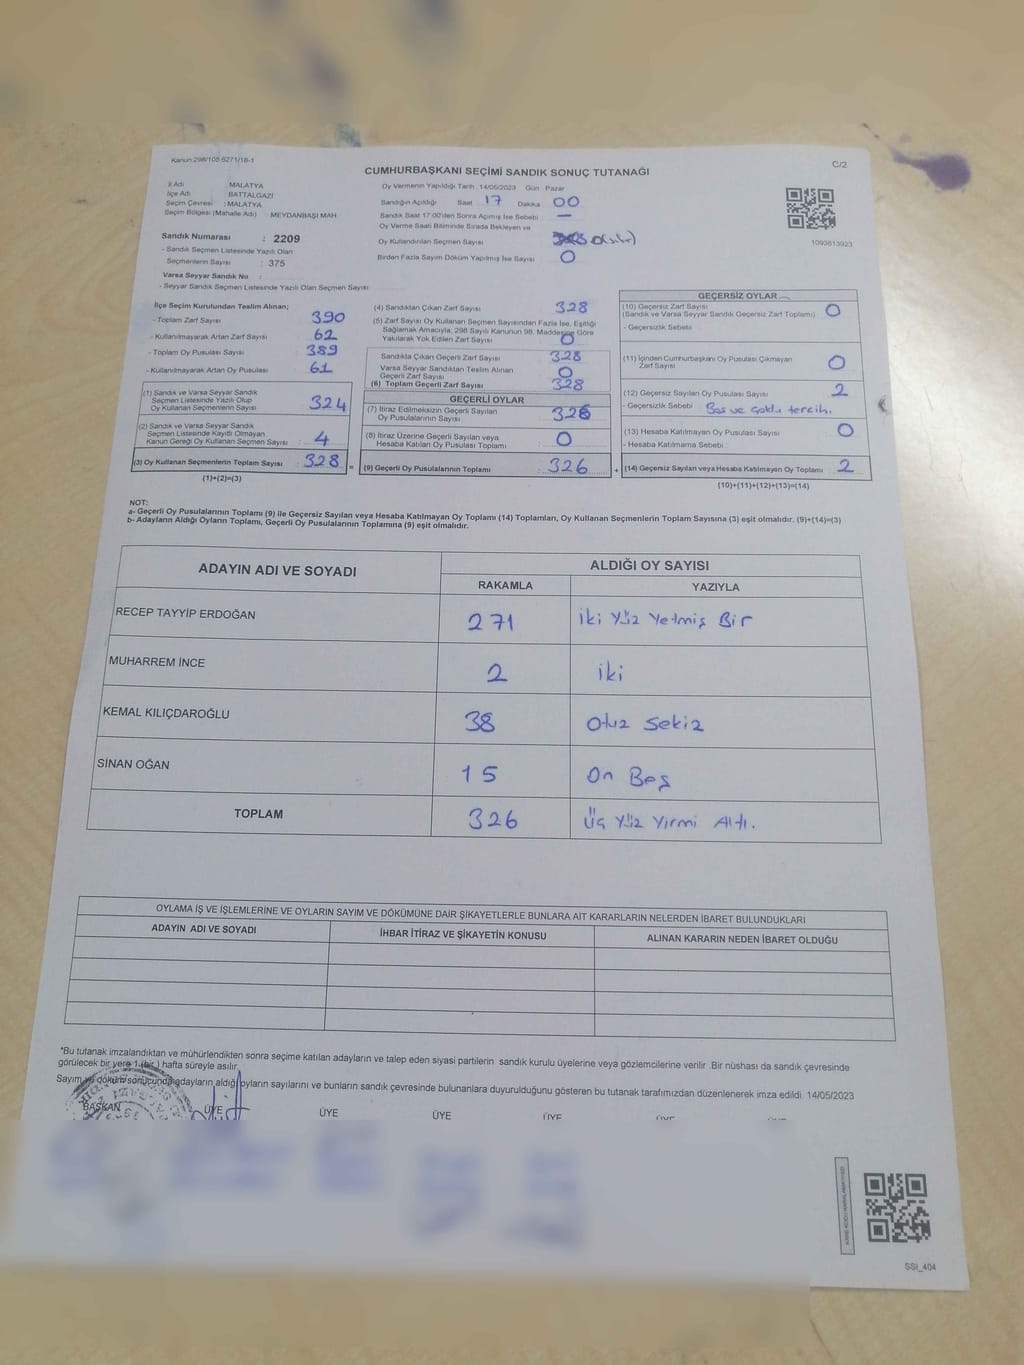 Kanun:298/105,6271/18-1
C/2
CUMHURBAŞKANI SEÇİMİ SANDIK SONUÇ TUTANAĞI
İl Adı : MALATYA
İlçe Adı : BATTALGAZİ
Seçim Çevresi : MALATYA
Seçim Bölgesi (Mahalle Adı) : MEYDANBAŞI MAH
Sandık Numarası : 2209
- Sandık Seçmen Listesinde Yazılı Olan
Seçmenlerin Sayısı : 375
Varsa Seyyar Sandık No :
- Seyyar Sandık Seçmen Listesinde Yazılı Olan Seçmen Sayısı :
Oy Vermenin Yapıldığı Tarih : 14/05/2023 Gün : Pazar
Sandığın Açıldığı Saat 17 Dakika 00
Sandık Saat 17:00'den Sonra Açılmış İse Sebebi : —
Oy Verme Saati Bitiminde Sırada Bekleyen ve
Oy Kullandırılan Seçmen Sayısı 0(sıfır)
Birden Fazla Sayım Döküm Yapılmış İse Sayısı 0
1093813923
İlçe Seçim Kurulundan Teslim Alınan;
- Toplam Zarf Sayısı : 390
- Kullanılmayarak Artan Zarf Sayısı : 62
- Toplam Oy Pusulası Sayısı : 389
- Kullanılmayarak Artan Oy Pusulası : 61
(1) Sandık ve Varsa Seyyar Sandık
Seçmen Listesinde Yazılı Olup
Oy Kullanan Seçmenlerin Sayısı : 324
(2) Sandık ve Varsa Seyyar Sandık
Seçmen Listesinde Kayıtlı Olmayan
Kanun Gereği Oy Kullanan Seçmen Sayısı : 4
(3) Oy Kullanan Seçmenlerin Toplam Sayısı : 328 =
(1)+(2)=(3)
(4) Sandıktan Çıkan Zarf Sayısı : 328
(5) Zarf Sayısı Oy Kullanan Seçmen Sayısından Fazla İse, Eşitliği
Sağlamak Amacıyla, 298 Sayılı Kanunun 98. Maddesine Göre
Yakılarak Yok Edilen Zarf Sayısı : 0
Sandıkta Çıkan Geçerli Zarf Sayısı : 328
Varsa Seyyar Sandıktan Teslim Alınan
Geçerli Zarf Sayısı : 0
(6) Toplam Geçerli Zarf Sayısı : 328
GEÇERLİ OYLAR
(7) İtiraz Edilmeksizin Geçerli Sayılan
Oy Pusulalarının Sayısı : 326
(8) İtiraz Üzerine Geçerli Sayılan veya
Hesaba Katılan Oy Pusulası Toplamı : 0
(9) Geçerli Oy Pusulalarının Toplamı : 326 +
GEÇERSİZ OYLAR
(10) Geçersiz Zarf Sayısı
(Sandık ve Varsa Seyyar Sandık Geçersiz Zarf Toplamı) : 0
- Geçersizlik Sebebi :
(11) İçinden Cumhurbaşkanı Oy Pusulası Çıkmayan
Zarf Sayısı : 0
(12) Geçersiz Sayılan Oy Pusulası Sayısı : 2
- Geçersizlik Sebebi : Boş ve çoklu tercih.
(13) Hesaba Katılmayan Oy Pusulası Sayısı : 0
- Hesaba Katılmama Sebebi :
(14) Geçersiz Sayılan veya Hesaba Katılmayan Oy Toplamı : 2
(10)+(11)+(12)+(13)=(14)
NOT:
a- Geçerli Oy Pusulalarının Toplamı (9) ile Geçersiz Sayılan veya Hesaba Katılmayan Oy Toplamı (14) Toplamları, Oy Kullanan Seçmenlerin Toplam Sayısına (3) eşit olmalıdır. (9)+(14)=(3)
b- Adayların Aldığı Oyların Toplamı, Geçerli Oy Pusulalarının Toplamına (9) eşit olmalıdır.
ADAYIN ADI VE SOYADI
ALDIĞI OY SAYISI
RAKAMLA YAZIYLA
RECEP TAYYİP ERDOĞAN 271 İki Yüz Yetmiş Bir
MUHARREM İNCE 2 iki
KEMAL KILIÇDAROĞLU 38 Otuz Sekiz
SİNAN OĞAN 15 On Beş
TOPLAM 326 Üç Yüz Yirmi Altı.
OYLAMA İŞ VE İŞLEMLERİNE VE OYLARIN SAYIM VE DÖKÜMÜNE DAİR ŞİKAYETLERLE BUNLARA AİT KARARLARIN NELERDEN İBARET BULUNDUKLARI
ADAYIN ADI VE SOYADI İHBAR İTİRAZ VE ŞİKAYETİN KONUSU ALINAN KARARIN NEDEN İBARET OLDUĞU
*Bu tutanak imzalandıktan ve mühürlendikten sonra seçime katılan adayların ve talep eden siyasi partilerin sandık kurulu üyelerine veya gözlemcilerine verilir. Bir nüshası da sandık çevresinde
görülecek bir yere 1 (bir) hafta süreyle asılır.
Sayım ve döküm sonucunda adayların aldığı oyların sayılarını ve bunların sandık çevresinde bulunanlara duyurulduğunu gösteren bu tutanak tarafımızdan düzenlenerek imza edildi. 14/05/2023
BAŞKAN ÜYE ÜYE ÜYE ÜYE
SSI_404